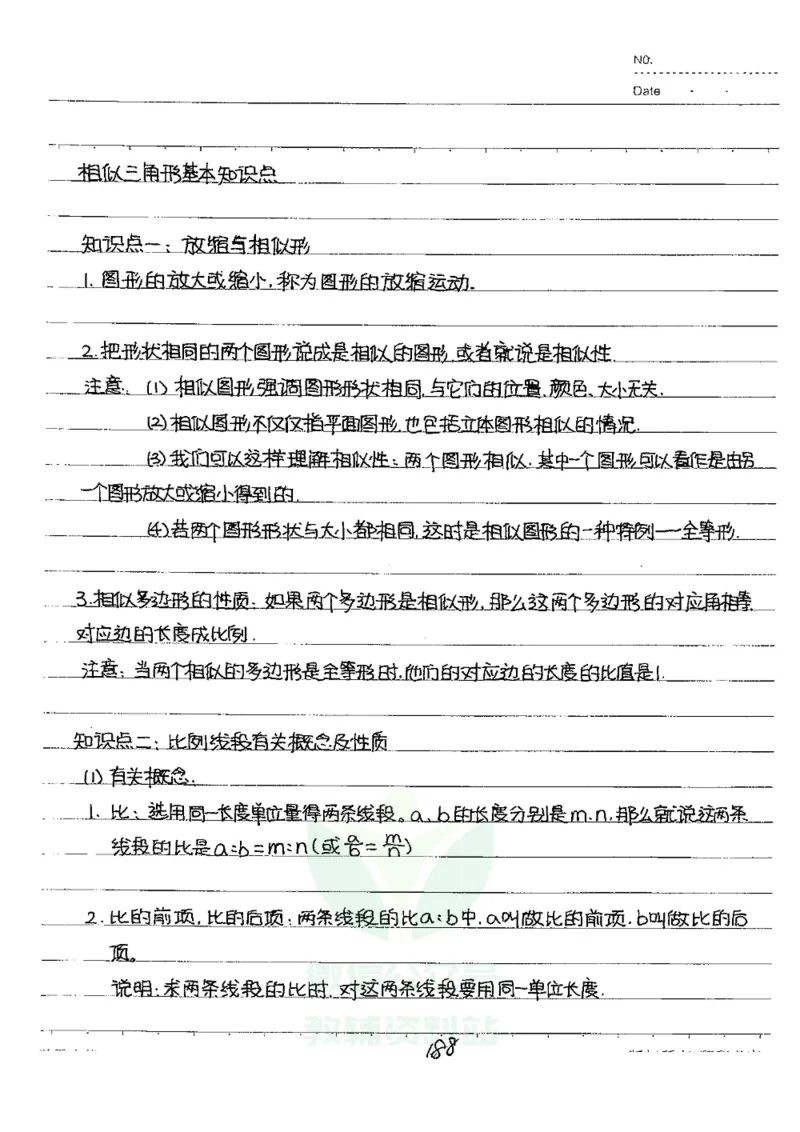 No.
Date
相似三角形基本知识点
知识点一：放缩与相似形
1. 图形的放大或缩小，称为图形的放缩运动.
2.把形状相同的两个图形说成是相似的图形，或者就说是相似性.
注意：(1) 相似图形强调图形形状相同,与它们的位置、颜色、大小无关.
(2)相似图形不仅仅指平面图形,也包括立体图形相似的情况.
(3)我们可以这样理解相似性：两个图形相似，其中一个图形可以看作是由另
一个图形放大或缩小得到的.
(4)若两个图形形状与大小都相同,这时是相似图形的一种特例——全等形.
3.相似多边形的性质：如果两个多边形是相似形,那么这两个多边形的对应角相等
对应边的长度成比例.
注意：当两个相似的多边形是全等形时,他们的对应边的长度的比值是1.
知识点二：比例线段有关概念及性质
(1) 有关概念.
1. 比：选用同一长度单位量得两条线段。a、b的长度分别是m、n,那么就说这两条
线段的比是a:b=m:n(或a/b=m/n)
2.比的前项,比的后项：两条线段的比a:b中,a叫做比的前项.b叫做比的后
项。
说明：求两条线段的比时,对这两条线段要用同一单位长度.
微信公众号
教辅资料站
188